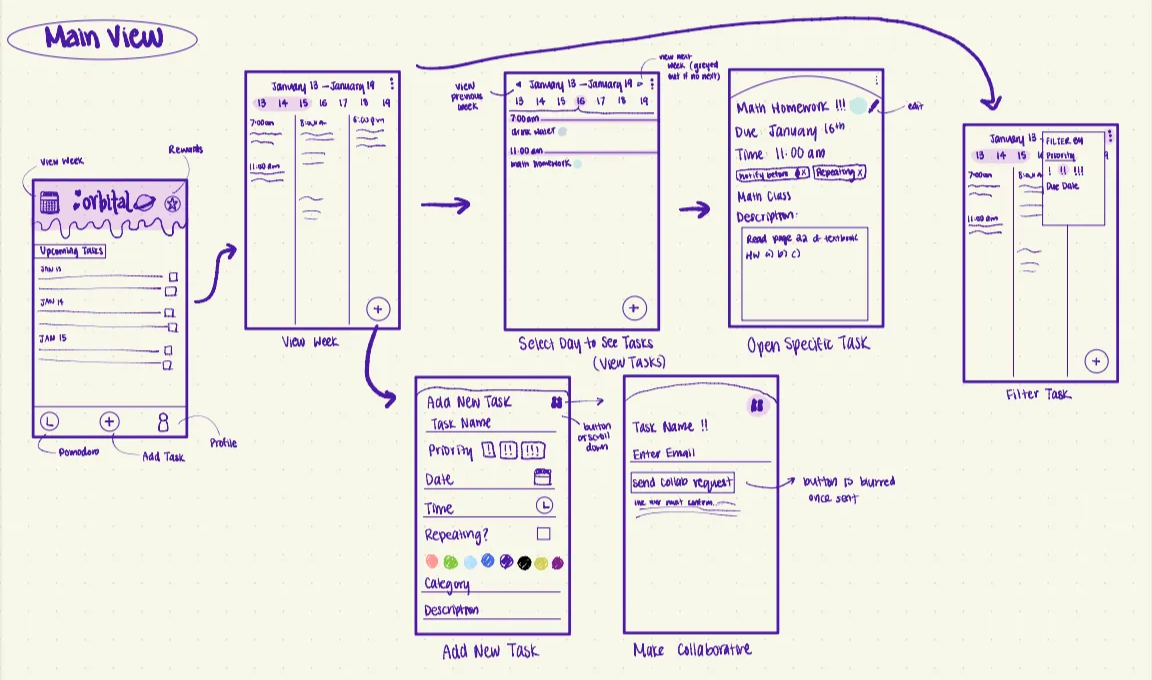 Main View
View Week
Rewards
:orbital
Upcoming Tasks
JAN 13
JAN 14
JAN 15
Pomodoro
Add Task
Profile
January 13 – January 19
13 14 15 16 17 18 19
7:00am
8:00am
6:00pm
11:00am
+
View Week
view previous week
view next week (greyed out if no next)
January 13 – January 19
13 14 15 16 17 18 19
7:00am
drink water
11:00am
math homework
+
Select Day to See Tasks
(View Tasks)
Math Homework !!!
edit
Due January 16th
Time 11:00 am
notify before x
Repeating x
Math Class
Description:
Read page 22 of textbook
HW a) b) c)
Open Specific Task
January 13
13 14 15
FILTER BY
Priority
! !! !!!
Due Date
7:00am
11:00am
+
Filter Task
Add New Task
button or scroll down
Task Name
Priority ! !! !!!
Date
Time
Repeating?
Category
Description
Add New Task
Task Name !!
Enter Email
send collab request
button is blurred
once sent
Make Collaborative